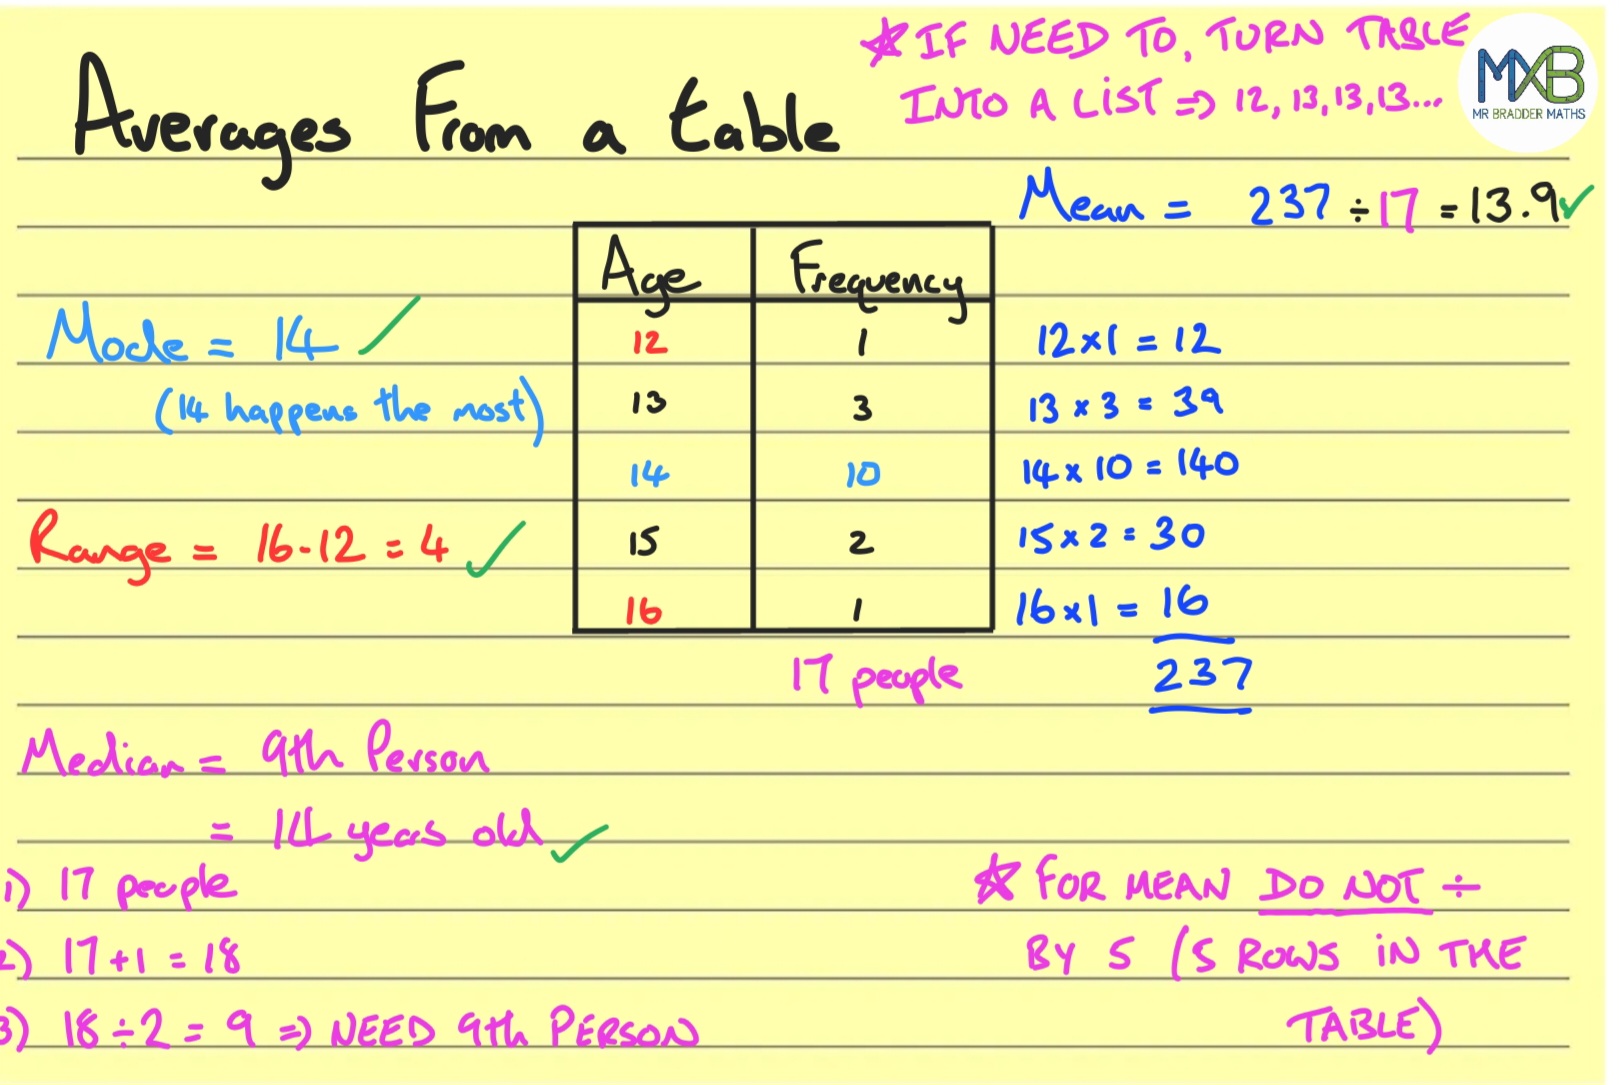 ★ IF NEED TO, TURN TABLE
INTO A LIST ⇒ 12, 13, 13, 13...
MXB
MR BRADDER MATHS
Averages From a table
Mean = 237 ÷ 17 = 13.9 ✓
Age Frequency
Mode = 14 ✓
(14 happens the most)
12 1 12 × 1 = 12
13 3 13 × 3 = 39
14 10 14 × 10 = 140
Range = 16 - 12 = 4 ✓
15 2 15 × 2 = 30
16 1 16 × 1 = 16
17 people 237
Median = 9th Person
= 14 years old ✓
1) 17 people
2) 17 + 1 = 18
3) 18 ÷ 2 = 9 ⇒ NEED 9th PERSON
★ FOR MEAN DO NOT ÷
BY 5 (5 ROWS IN THE
TABLE)